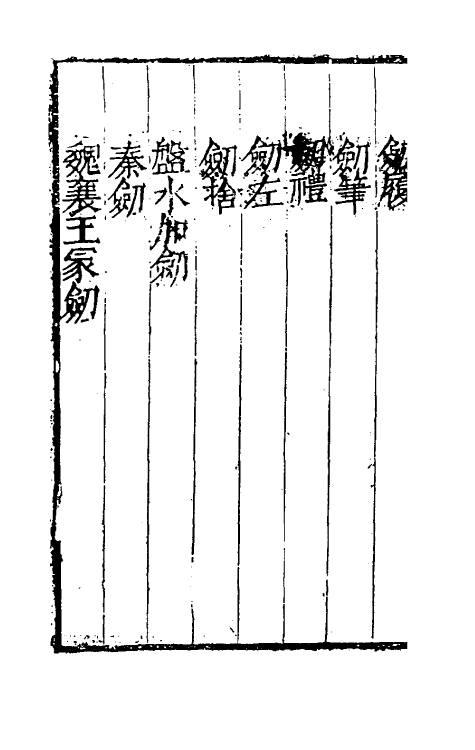 劒履
劒筆
劒禮
劒左
劒拾
盤水加劒
秦劒
魏襄王冢劒